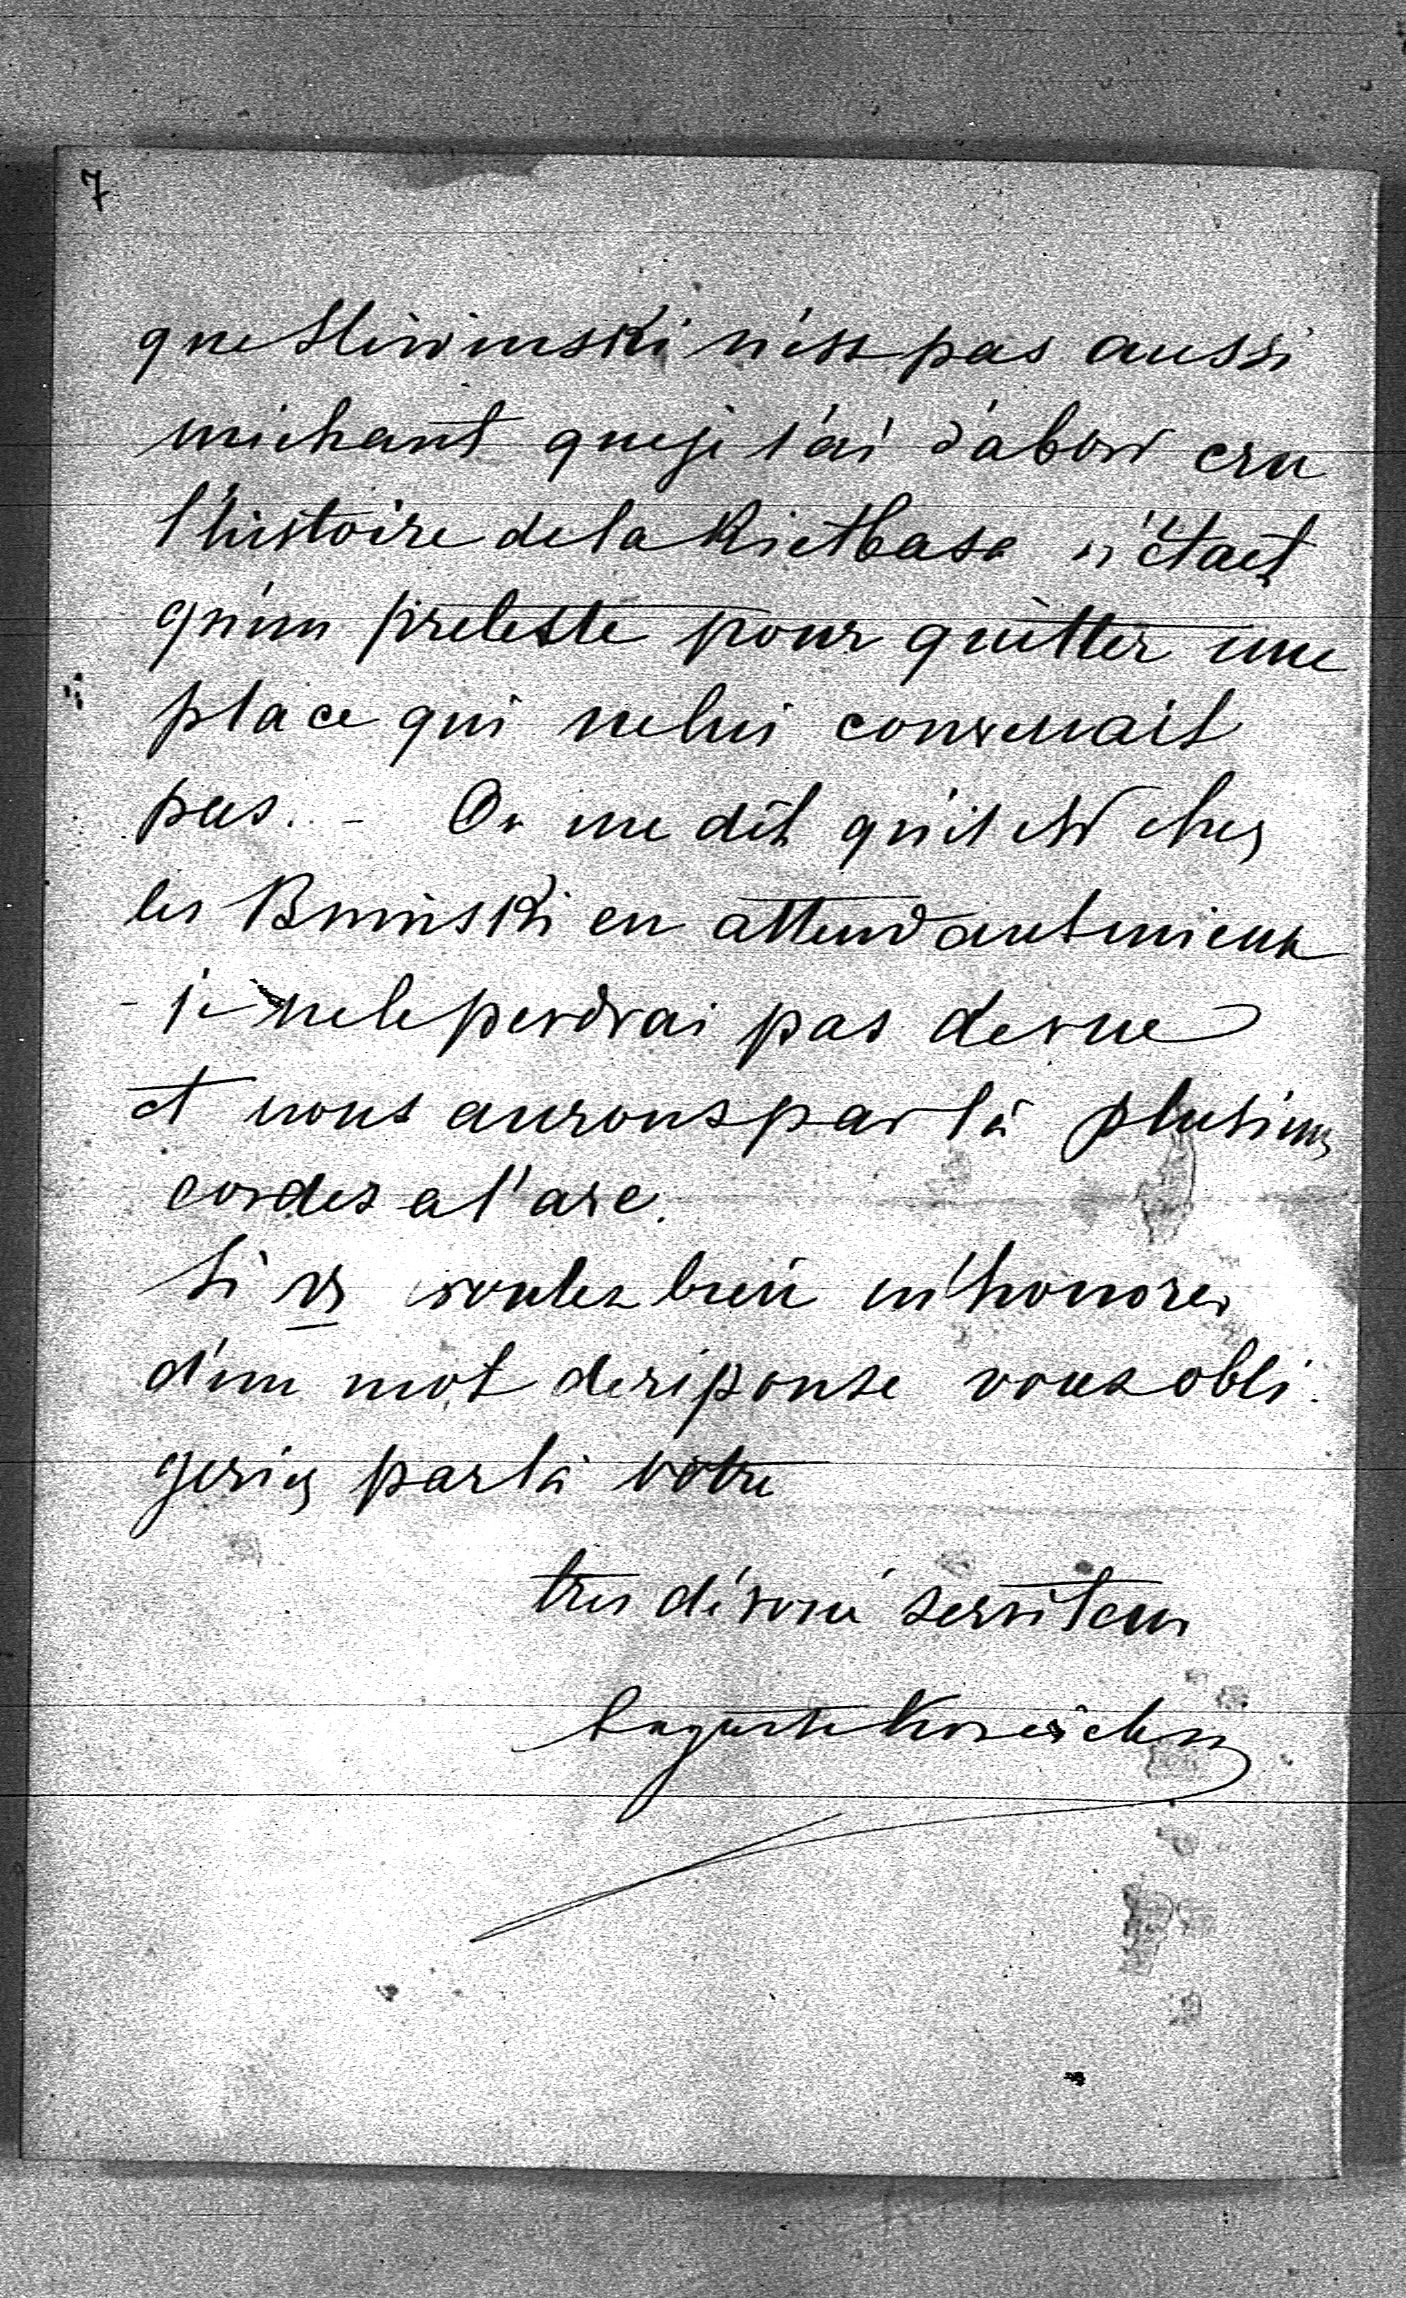 7
que Sliwinski n'est pas aussi
méchant que je l'ai d'abord cru
l'histoire de la Kiełbasa n'était
qu'un prétexte pour quitter une
place qui ne lui convenait
pas. - On me dit qu'il est chez
les Bninski en attendant mieux
- je ne le perdrai pas de vue
et nous aurons par là plusieurs
cordes a l'arc.
Si vs voulez bien m'honorer
d'un mot de réponse vous obli
geriez par là votre
très dévoué serviteur
Auguste